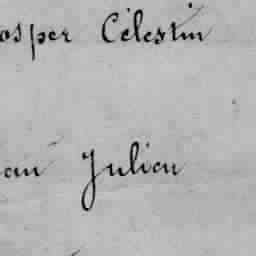 osper Célestin
an Julien